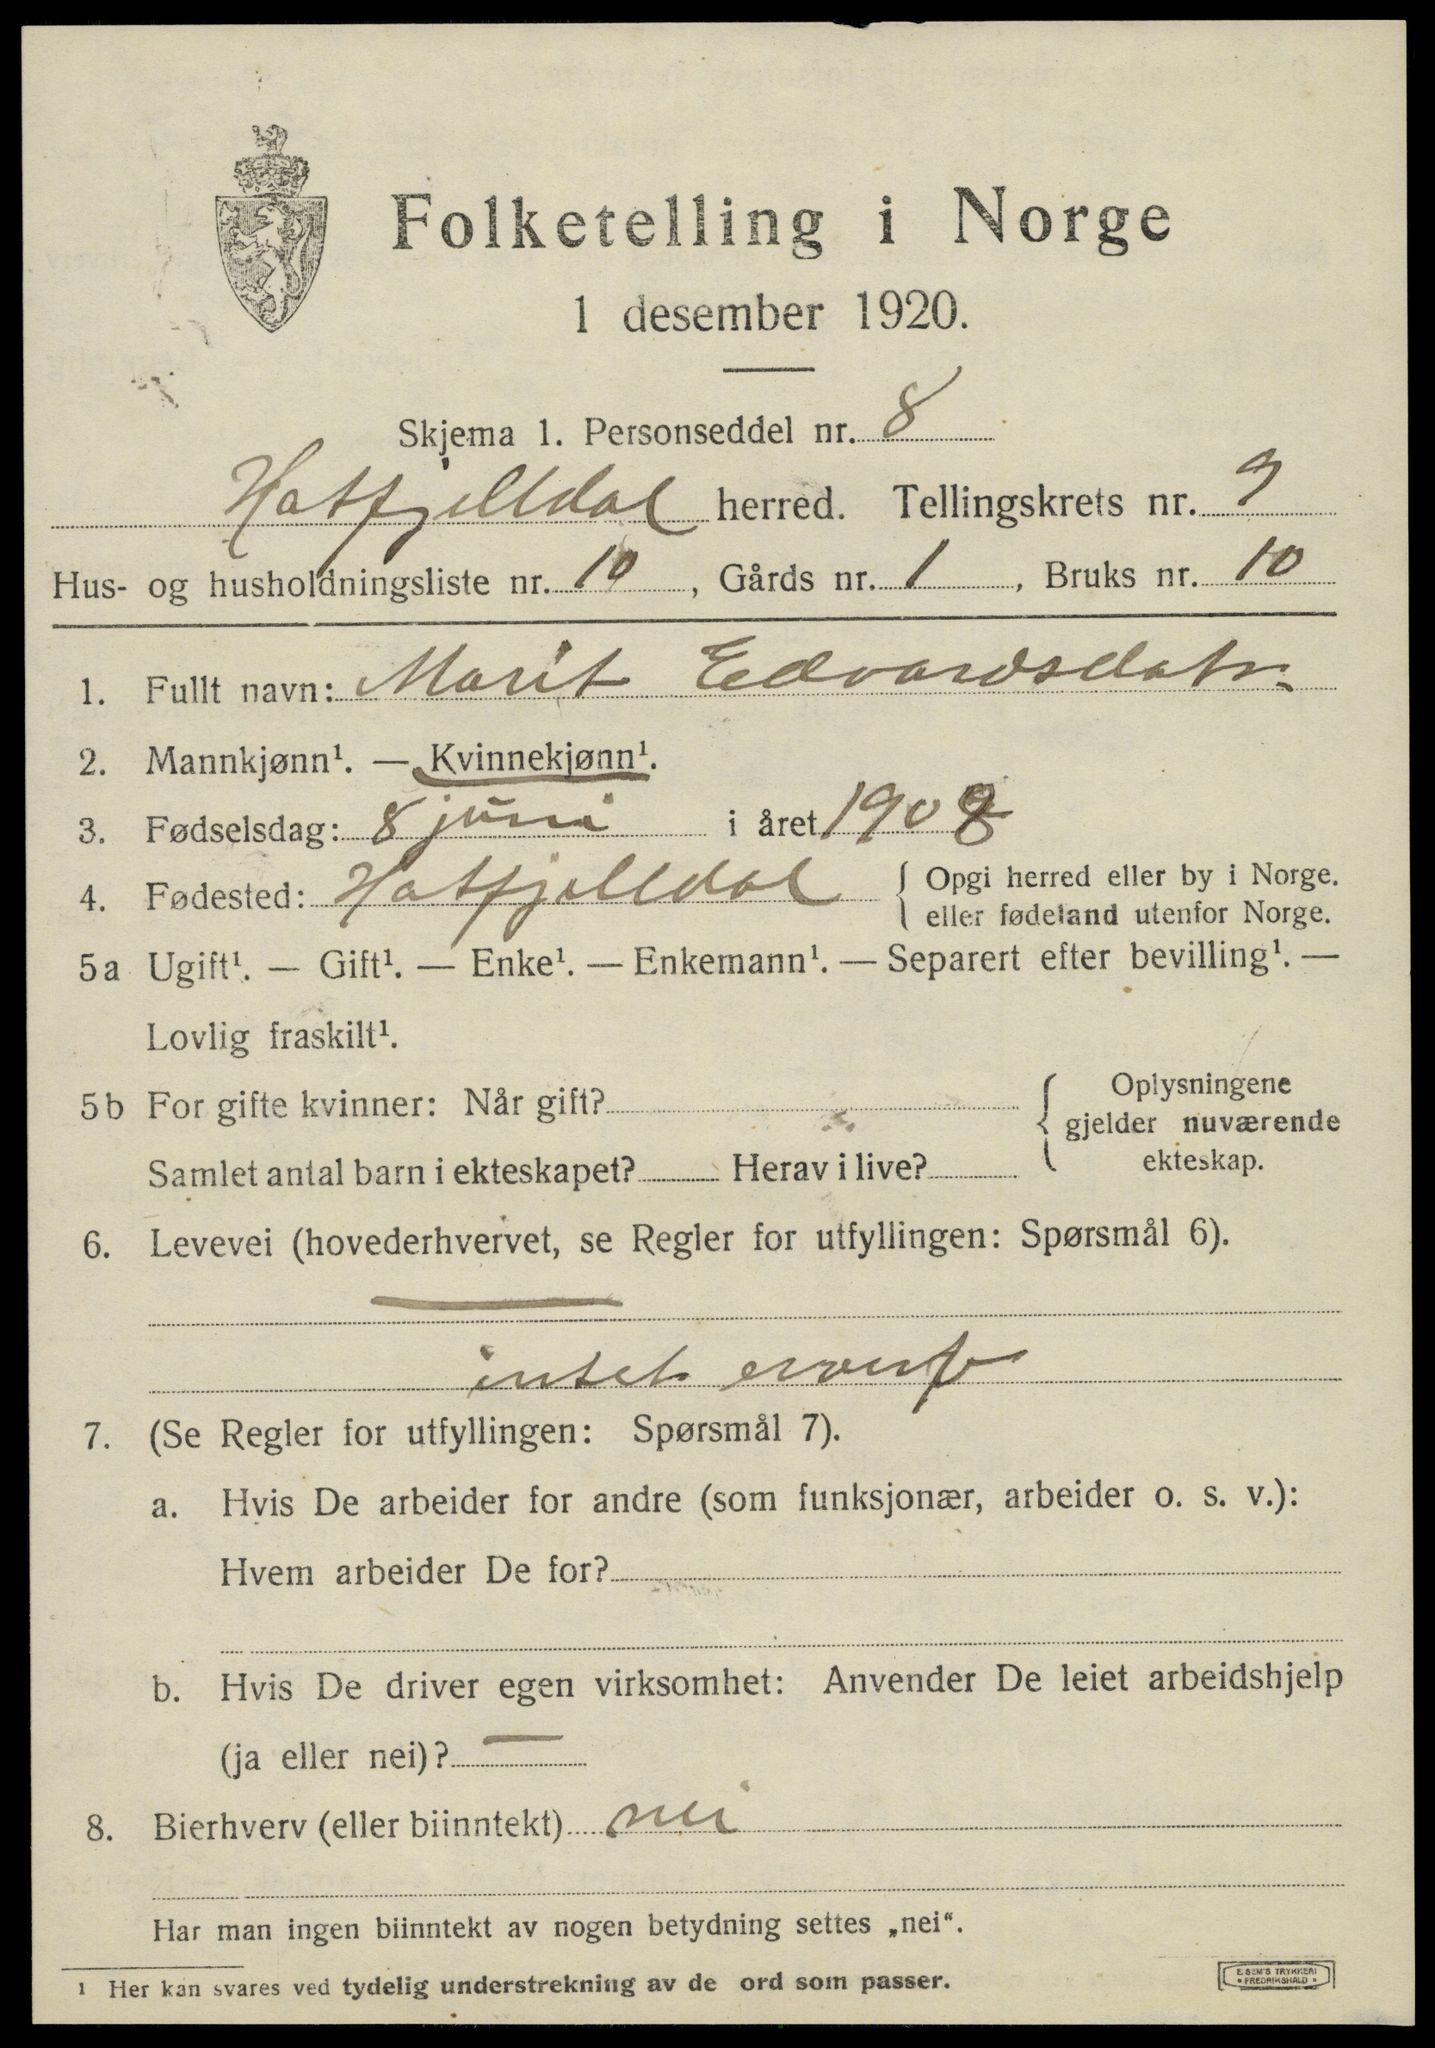 Folketelling i Norge
1 desember 1920.
Skjema 1. Personseddel nr. 8
Hatfjelldal herred. Tellingskrets nr. 9
Hus- og husholdningsliste nr. 10, Gårds nr. 1, Bruks nr. 10
1. Fullt navn: Marit Edvardsdatr.
2. Mannkjønn¹. — Kvinnekjønn¹.
3. Fødselsdag: 8 juni i året 190
4. Fødested: Hatfjelldal { Opgi herred eller by i Norge.
eller fødeland utenfor Norge.
5a Ugift¹. — Gift¹. — Enke¹. — Enkemann¹. — Separert efter bevilling¹. —
Lovlig fraskilt¹.
5b For gifte kvinner: Når gift?
Samlet antal barn i ekteskapet? Herav i live?
{ Oplysningene
gjelder nuværende
ekteskap.
6. Levevei (hovederhvervet, se Regler for utfyllingen: Spørsmål 6).
—
intet erverf
7. (Se Regler for utfyllingen: Spørsmål 7).
a. Hvis De arbeider for andre (som funksjonær, arbeider o. s. v.):
Hvem arbeider De for?
b. Hvis De driver egen virksomhet: Anvender De leiet arbeidshjelp
(ja eller nei)? —
8. Bierhverv (eller biinntekt) nei
Har man ingen biinntekt av nogen betydning settes „nei“.
¹ Her kan svares ved tydelig understrekning av de ord som passer.
E. SEM'S TRYKKERI
• FREDRIKSHALD •